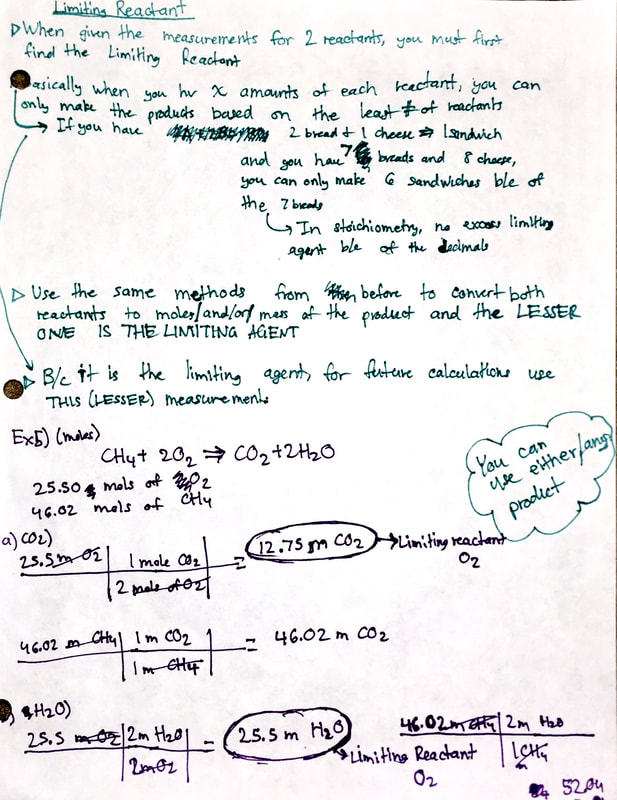 Limiting Reactant
▷When given the measurements for 2 reactants, you must first
find the Limiting Reactant
Basically when you hv x amounts of each reactant, you can
only make the products based on the least # of reactants
→ If you have 2 bread + 1 cheese ⇒ 1 sandwich
and you have 7 breads and 8 cheese,
you can only make 6 sandwiches b/c of
the 7 breads
↳ In stoichiometry, no excess limiting
agent b/c of the decimals
▷ Use the same methods from before to convert both
reactants to moles/and/or/ mass of the product and the LESSER
ONE IS THE LIMITING AGENT
▷ B/c it is the limiting agent, for future calculations use
THIS (LESSER) measurements
Ex5) (moles)
CH4 + 2O2 ⇒ CO2 + 2H2O
25.50 mols of O2
46.02 mols of CH4
You can
use either/any
product
a) CO2)
25.5 m O2 | 1 mole CO2 | = 12.75 m CO2 → Limiting reactant
2 mols of O2 O2
46.02 m CH4 | 1 m CO2 | = 46.02 m CO2
1 m CH4
) H2O)
25.5 m O2 | 2m H2O | = 25.5 m H2O
2mO2
→ Limiting Reactant
O2
46.02 m CH4 | 2m H2O
1 m CH4
52.04